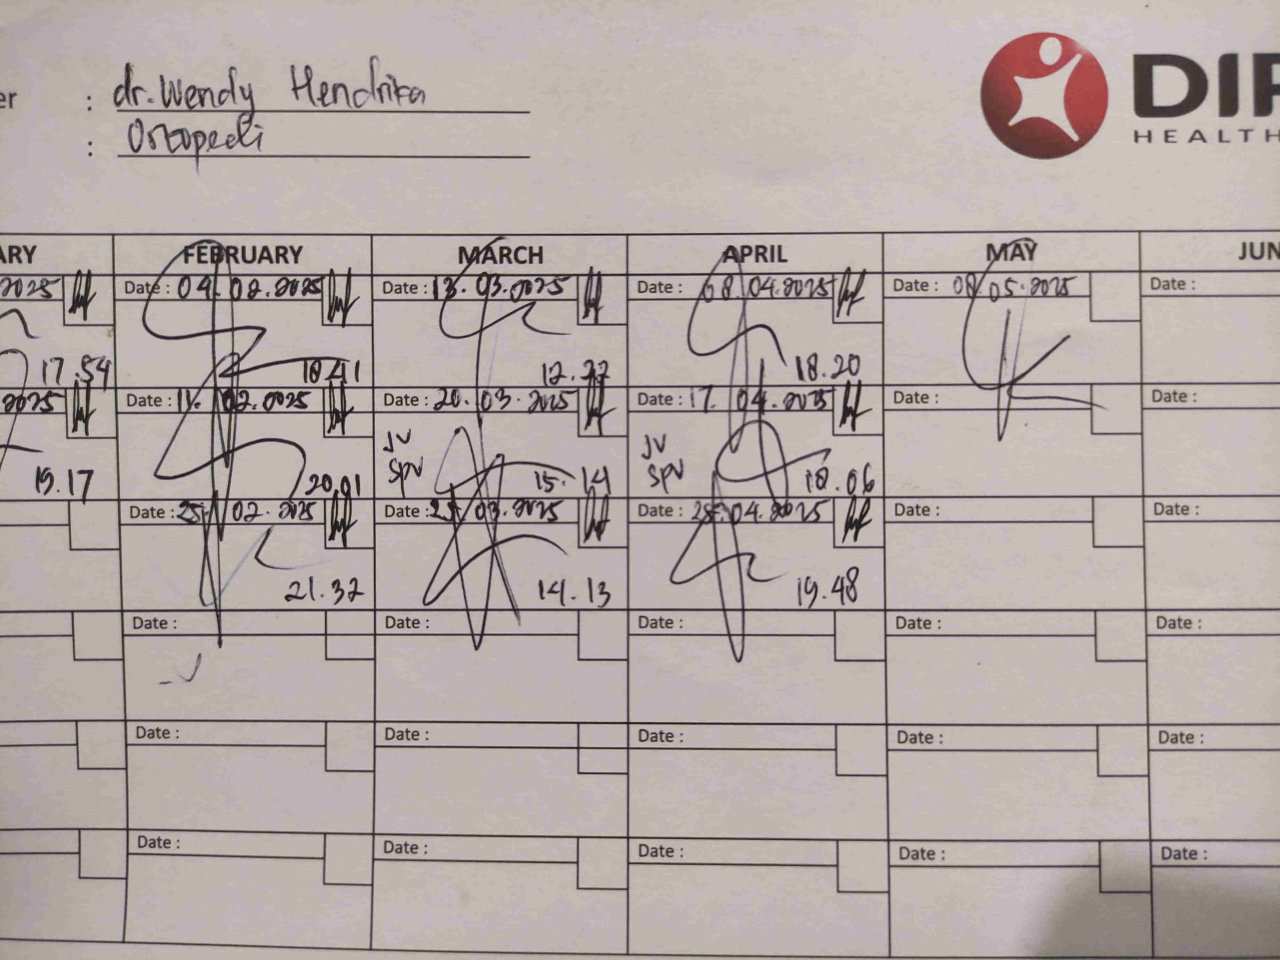 er : dr. Wendy Hendrika
: Ortopedi
DIP
HEALTH
ARY FEBRUARY MARCH APRIL MAY JUN
2025 Date : 04.02.2025 Date : 13.03.2025 Date : 08.04.2025 Date : 08.05.2025 Date :
17.54 18.41 12.27 18.20
2025 Date : 11.02.2025 Date : 20.03.2025 Date : 17.04.2025 Date : Date :
JV JV
19.17 20.01 SPV 15.14 SPV 18.06
Date : 25.02.2025 Date : 25.03.2025 Date : 25.04.2025 Date : Date :
21.32 14.13 19.48
Date : Date : Date : Date : Date :
Date : Date : Date : Date : Date :
Date : Date : Date : Date : Date :